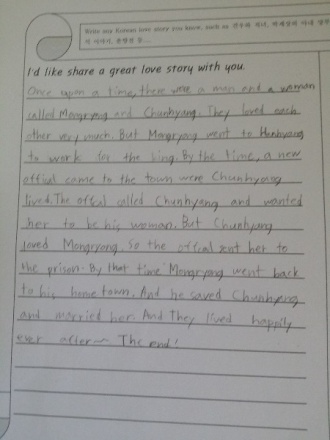 Write any Korean love story you know, such as 견우와 직녀, 바보온달
I'd like share a great love story with you.
Once upon a time, there were a man and a woman
called Mongryong and Chunhyang. They loved each
other very much. But Mongryong went to Hanhyang
to work for the king. By the time, a new
offical came to the town were Chunhyang
lived. The offical called Chunhyang and wanted
her to be his woman. But Chunhyang
loved Mongryong. So the offical sent her to
the prison. By that time Mongryong went back
to his home town. And he saved Chunhyang
and married her. And They lived happily
ever after~ The end!